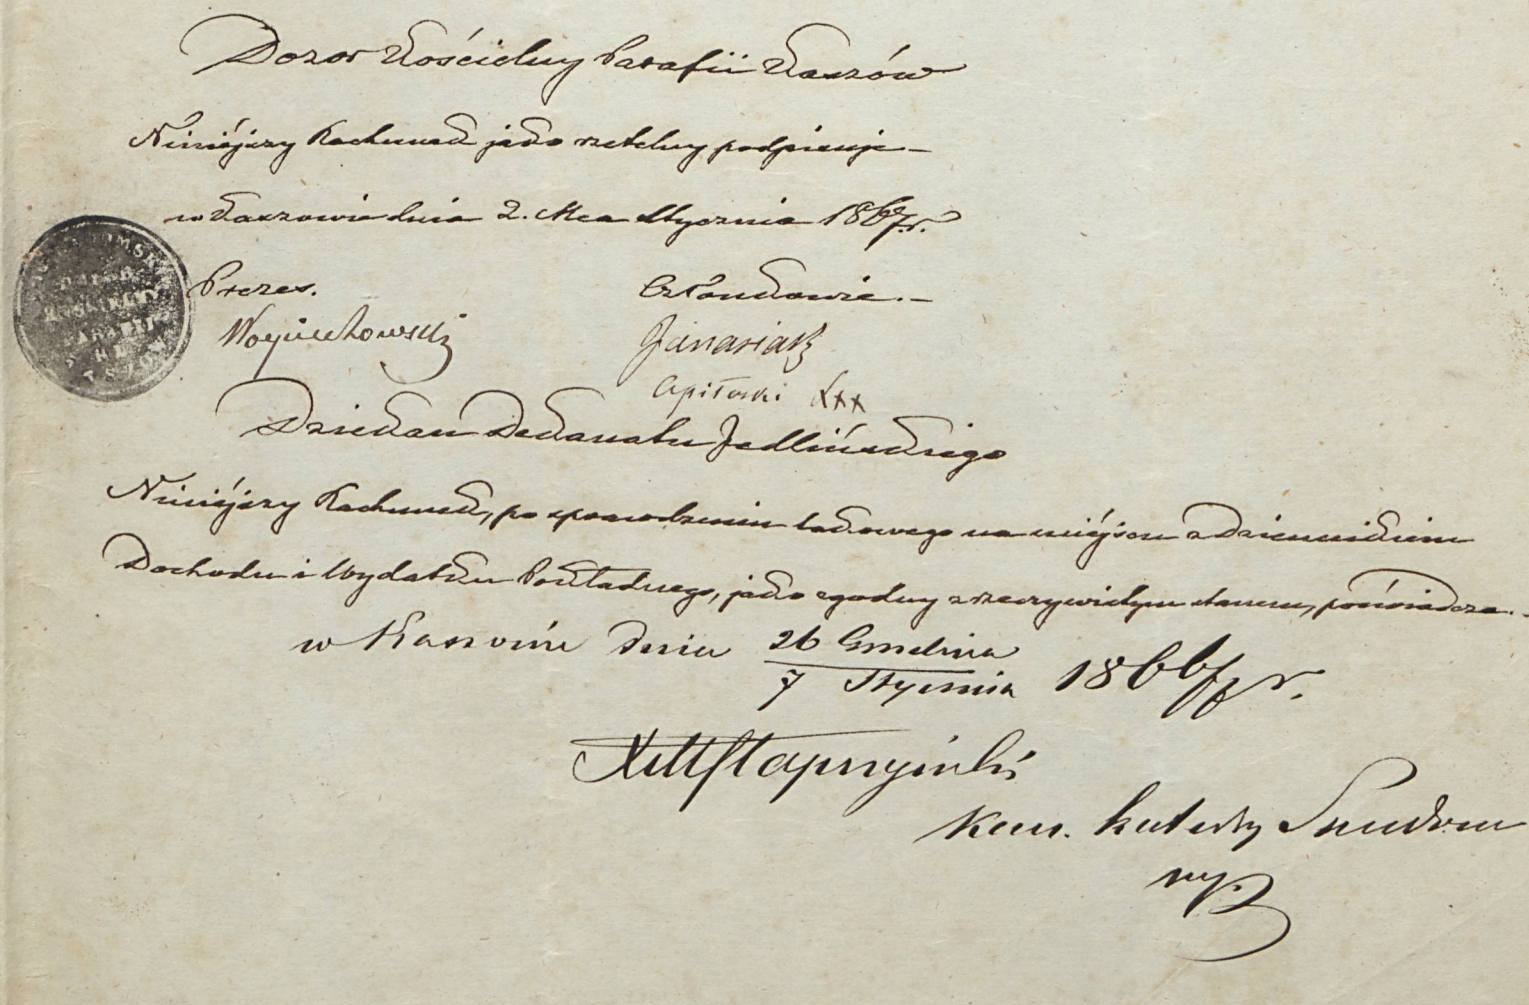 Dozór Kościelny Parafii Kaszów
Niniéjszy Rachunek jako rzetelny podpisuje –
w Kaszowie dnia 2. Mca Stycznia 1867 r.
Prezes. Członkowie. –
Woyciechowski Janasiak
Opiłowski XXX
Dziekan Dekanatu Jedlińskiego
Niniéjszy Rachunek, po sprawdzeniu takowego na miéjscu z Dziennikiem
Dochodu i Wydatku Pokładnego, jako zgodny z rzeczywistym stanem, poświadcza. –
w Kaszowie dnia 26 Grudnia
7 Stycznia 1866/7 r.
Kan. Katedry Sandom
mp.